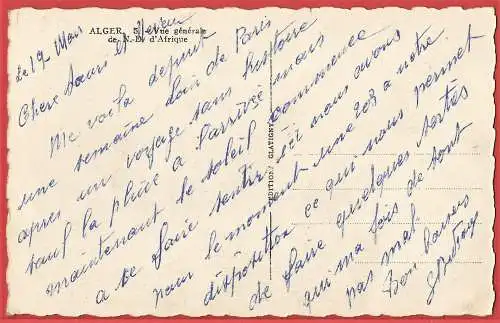 ALGER. 5. - Vue générale
de N.-D. d'Afrique
le 19 Mars
Chère Sœur et Neveu
Me voila depuis
une semaine loin de Paris
après un voyage sans histoire
sauf la pluie a l'arrivée mais
maintenant le soleil commence
a se faire sentir, et nous avons
pour le moment une 203 a notre
disposition ce qui nous permet
de faire quelques sorties
qui ma fois de sont
pas mal.
Bon baisers
EDITION GLATIGNY